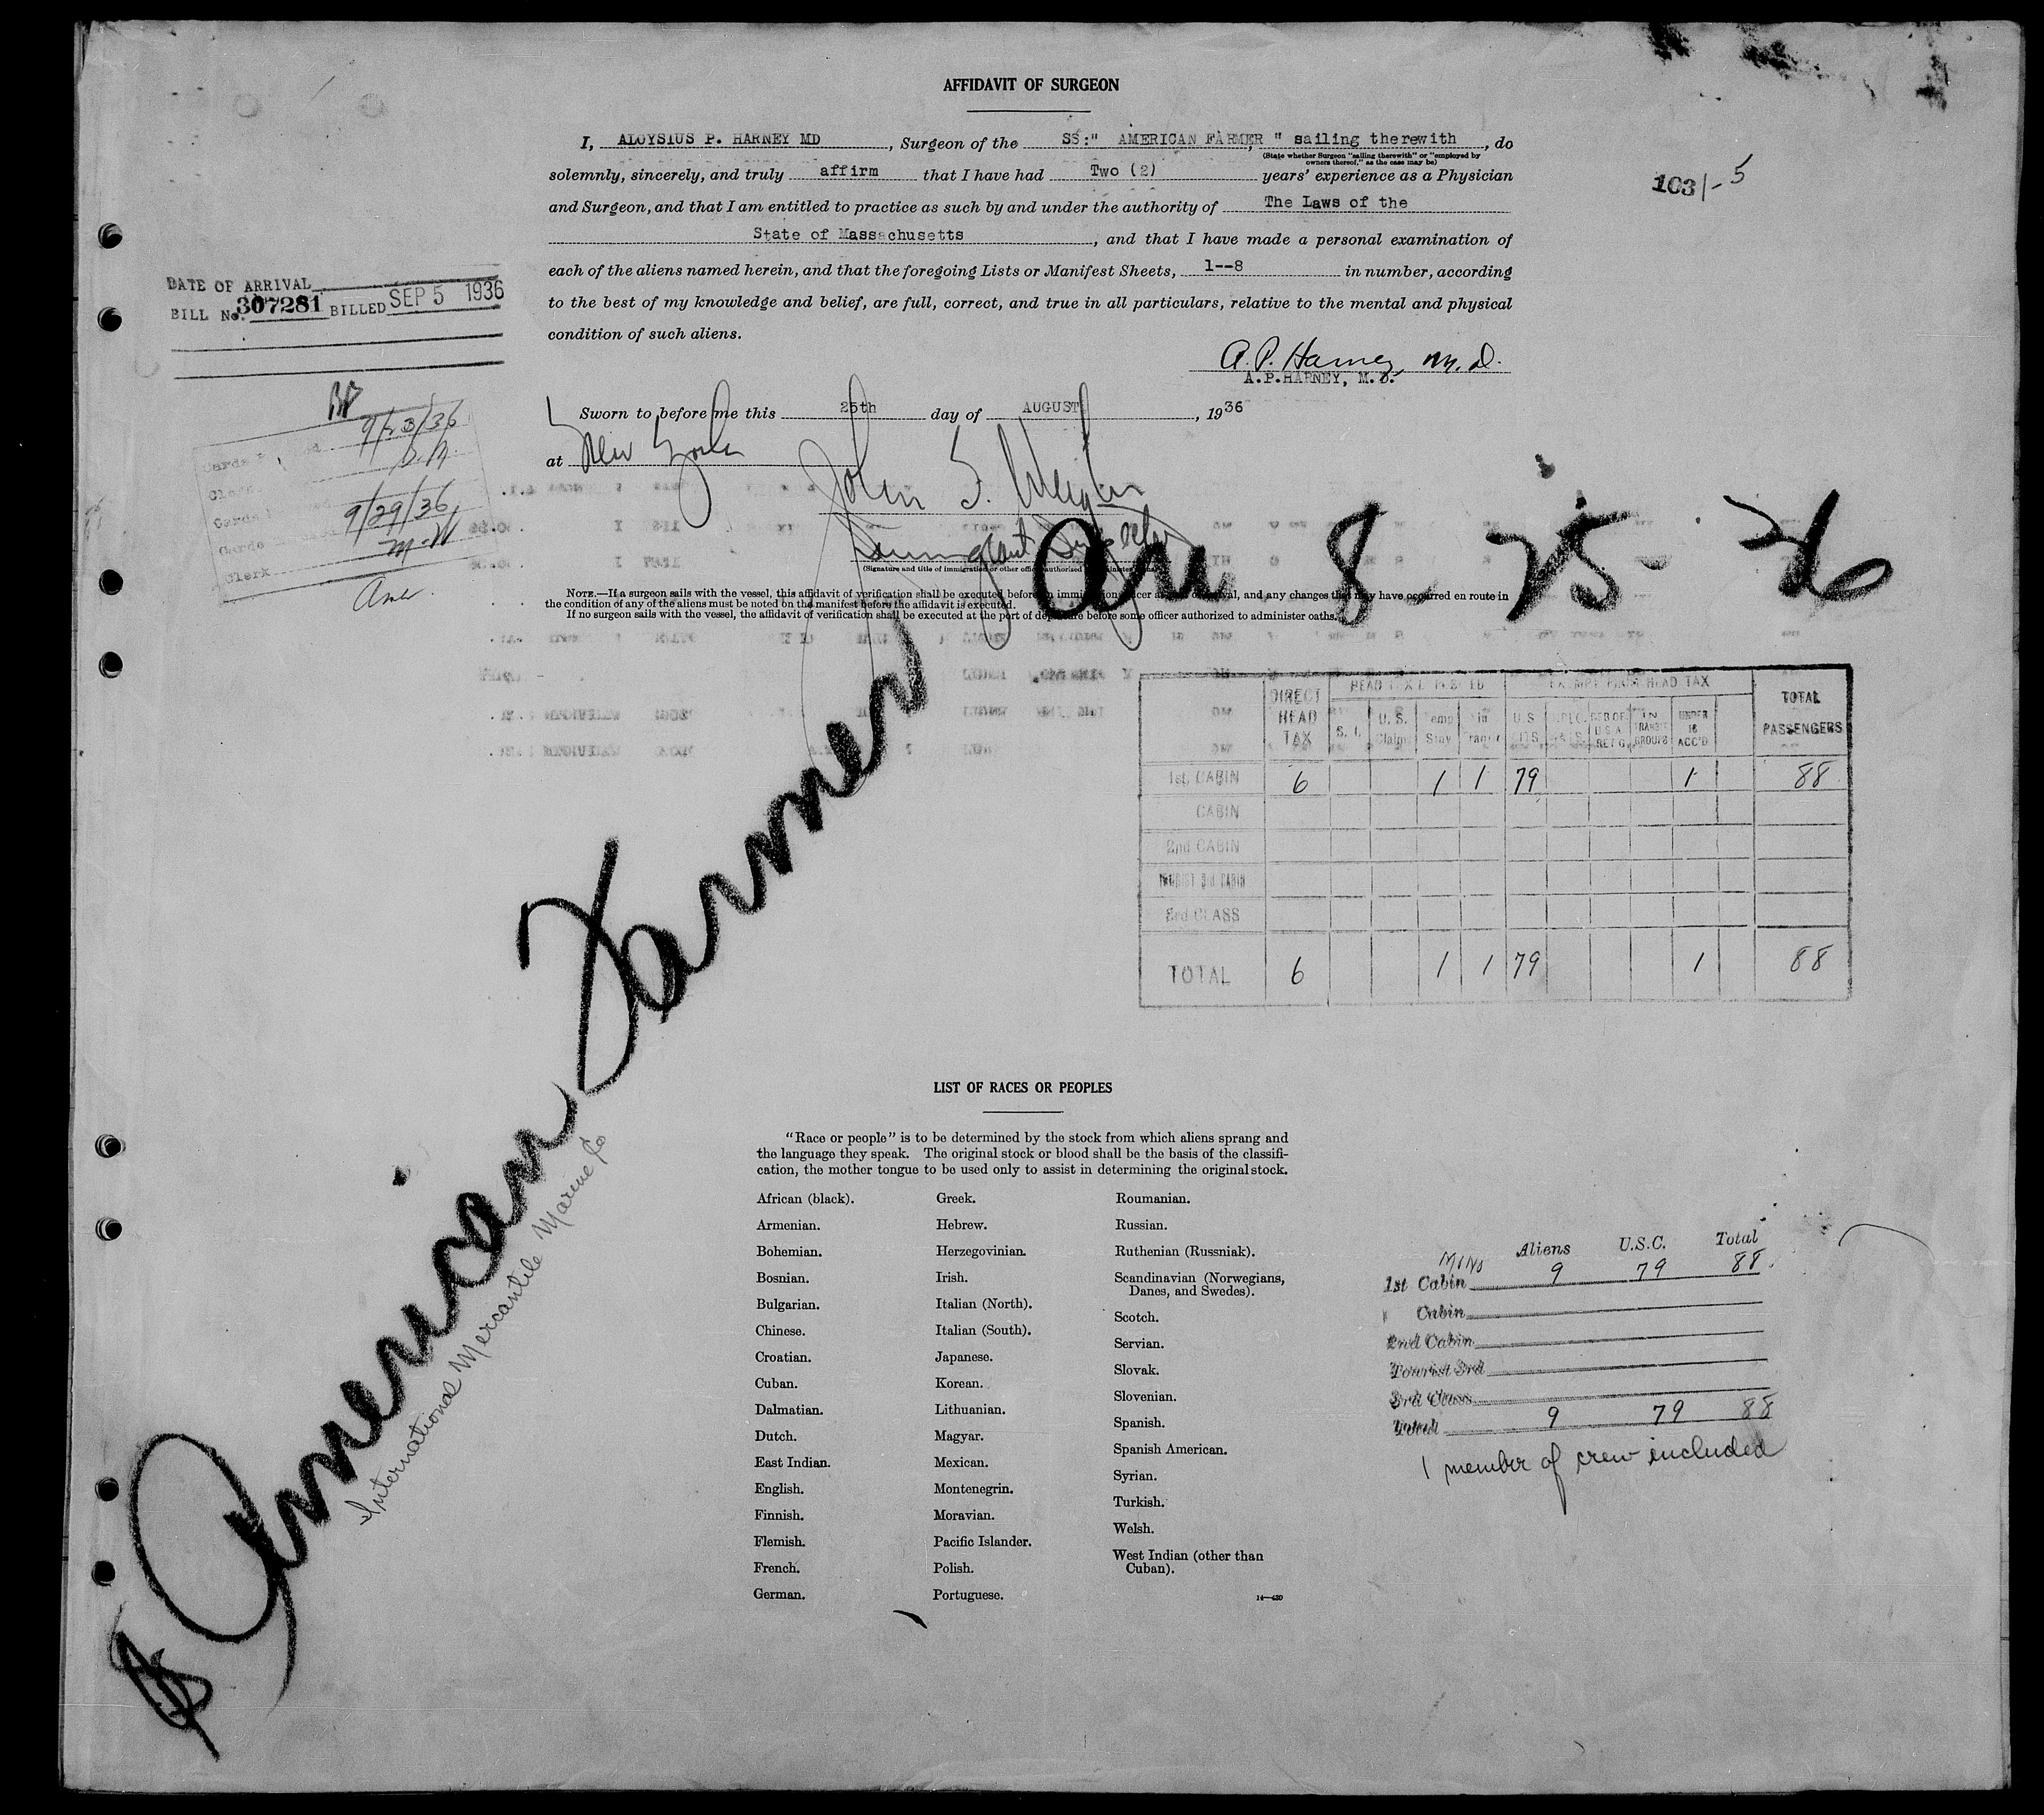 AFFIDAVIT OF SURGEON
I, ALOYSIUS P. HARNEY MD, Surgeon of the SS:" AMERICAN FARMER " sailing therewith, do
(State whether Surgeon "sailing therewith" or "employed by
owners thereof," as the case may be)
solemnly, sincerely, and truly affirm that I have had Two (2) years' experience as a Physician
103/-5
and Surgeon, and that I am entitled to practice as such by and under the authority of The Laws of the
State of Massachusetts, and that I have made a personal examination of
each of the aliens named herein, and that the foregoing Lists or Manifest Sheets, 1--8 in number, according
to the best of my knowledge and belief, are full, correct, and true in all particulars, relative to the mental and physical
condition of such aliens.
DATE OF ARRIVAL
BILL No. 307281 BILLED SEP 5 1936
A. P. Harney, M.D.
A.P.HARNEY, M.D.
Sworn to before me this 25th day of AUGUST, 1936
at New York
9/23/36
9/29/36
M.W
Clerk
John
Immigrant Inspector
(Signature and title of immigration or other officer authorized
Arr 8-25-36
NOTE.—If a surgeon sails with the vessel, this affidavit of verification shall be executed before an immigration officer arrival, and any changes that may have occurred en route in
the condition of any of the aliens must be noted on the manifest before the affidavit is executed.
If no surgeon sails with the vessel, the affidavit of verification shall be executed at the port of departure before some officer authorized to administer oaths.
DIRECT HEAD TAX
EXEMPT FROM HEAD TAX
S. I. U. S. Claim Temp Stay In Transit U.S. CITS. IN TRANSIT GROUPS UNDER 16 ACC'D TOTAL PASSENGERS
1st CABIN 6 1 1 79 1 88
CABIN
2nd CABIN
TOURIST 3rd CABIN
3rd CLASS
TOTAL 6 1 1 79 1 88
SS American Farmer
International Mercantile Marine Co
LIST OF RACES OR PEOPLES
"Race or people" is to be determined by the stock from which aliens sprang and
the language they speak. The original stock or blood shall be the basis of the classifi-
cation, the mother tongue to be used only to assist in determining the original stock.
African (black).
Armenian.
Bohemian.
Bosnian.
Bulgarian.
Chinese.
Croatian.
Cuban.
Dalmatian.
Dutch.
East Indian.
English.
Finnish.
Flemish.
French.
German.
Greek.
Hebrew.
Herzegovinian.
Irish.
Italian (North).
Italian (South).
Japanese.
Korean.
Lithuanian.
Magyar.
Mexican.
Montenegrin.
Moravian.
Pacific Islander.
Polish.
Portuguese.
Roumanian.
Russian.
Ruthenian (Russniak).
Scandinavian (Norwegians,
Danes, and Swedes).
Scotch.
Servian.
Slovak.
Slovenian.
Spanish.
Spanish American.
Syrian.
Turkish.
Welsh.
West Indian (other than
Cuban).
14—430
Aliens U.S.C. Total
1st Cabin 9 79 88
Cabin
2nd Cabin
Tourist 3rd
3rd Class
Total 9 79 88
1 member of crew included